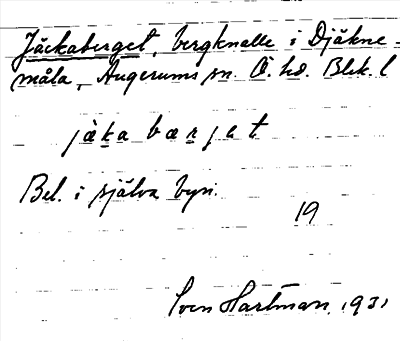 Jäckaberget, bergknalle i Djäkne-
måla, Augerums sn. Ö. hd. Blek. l
jàka bærjet
Bel. i själva byn.
19
Sven Hartman, 1931